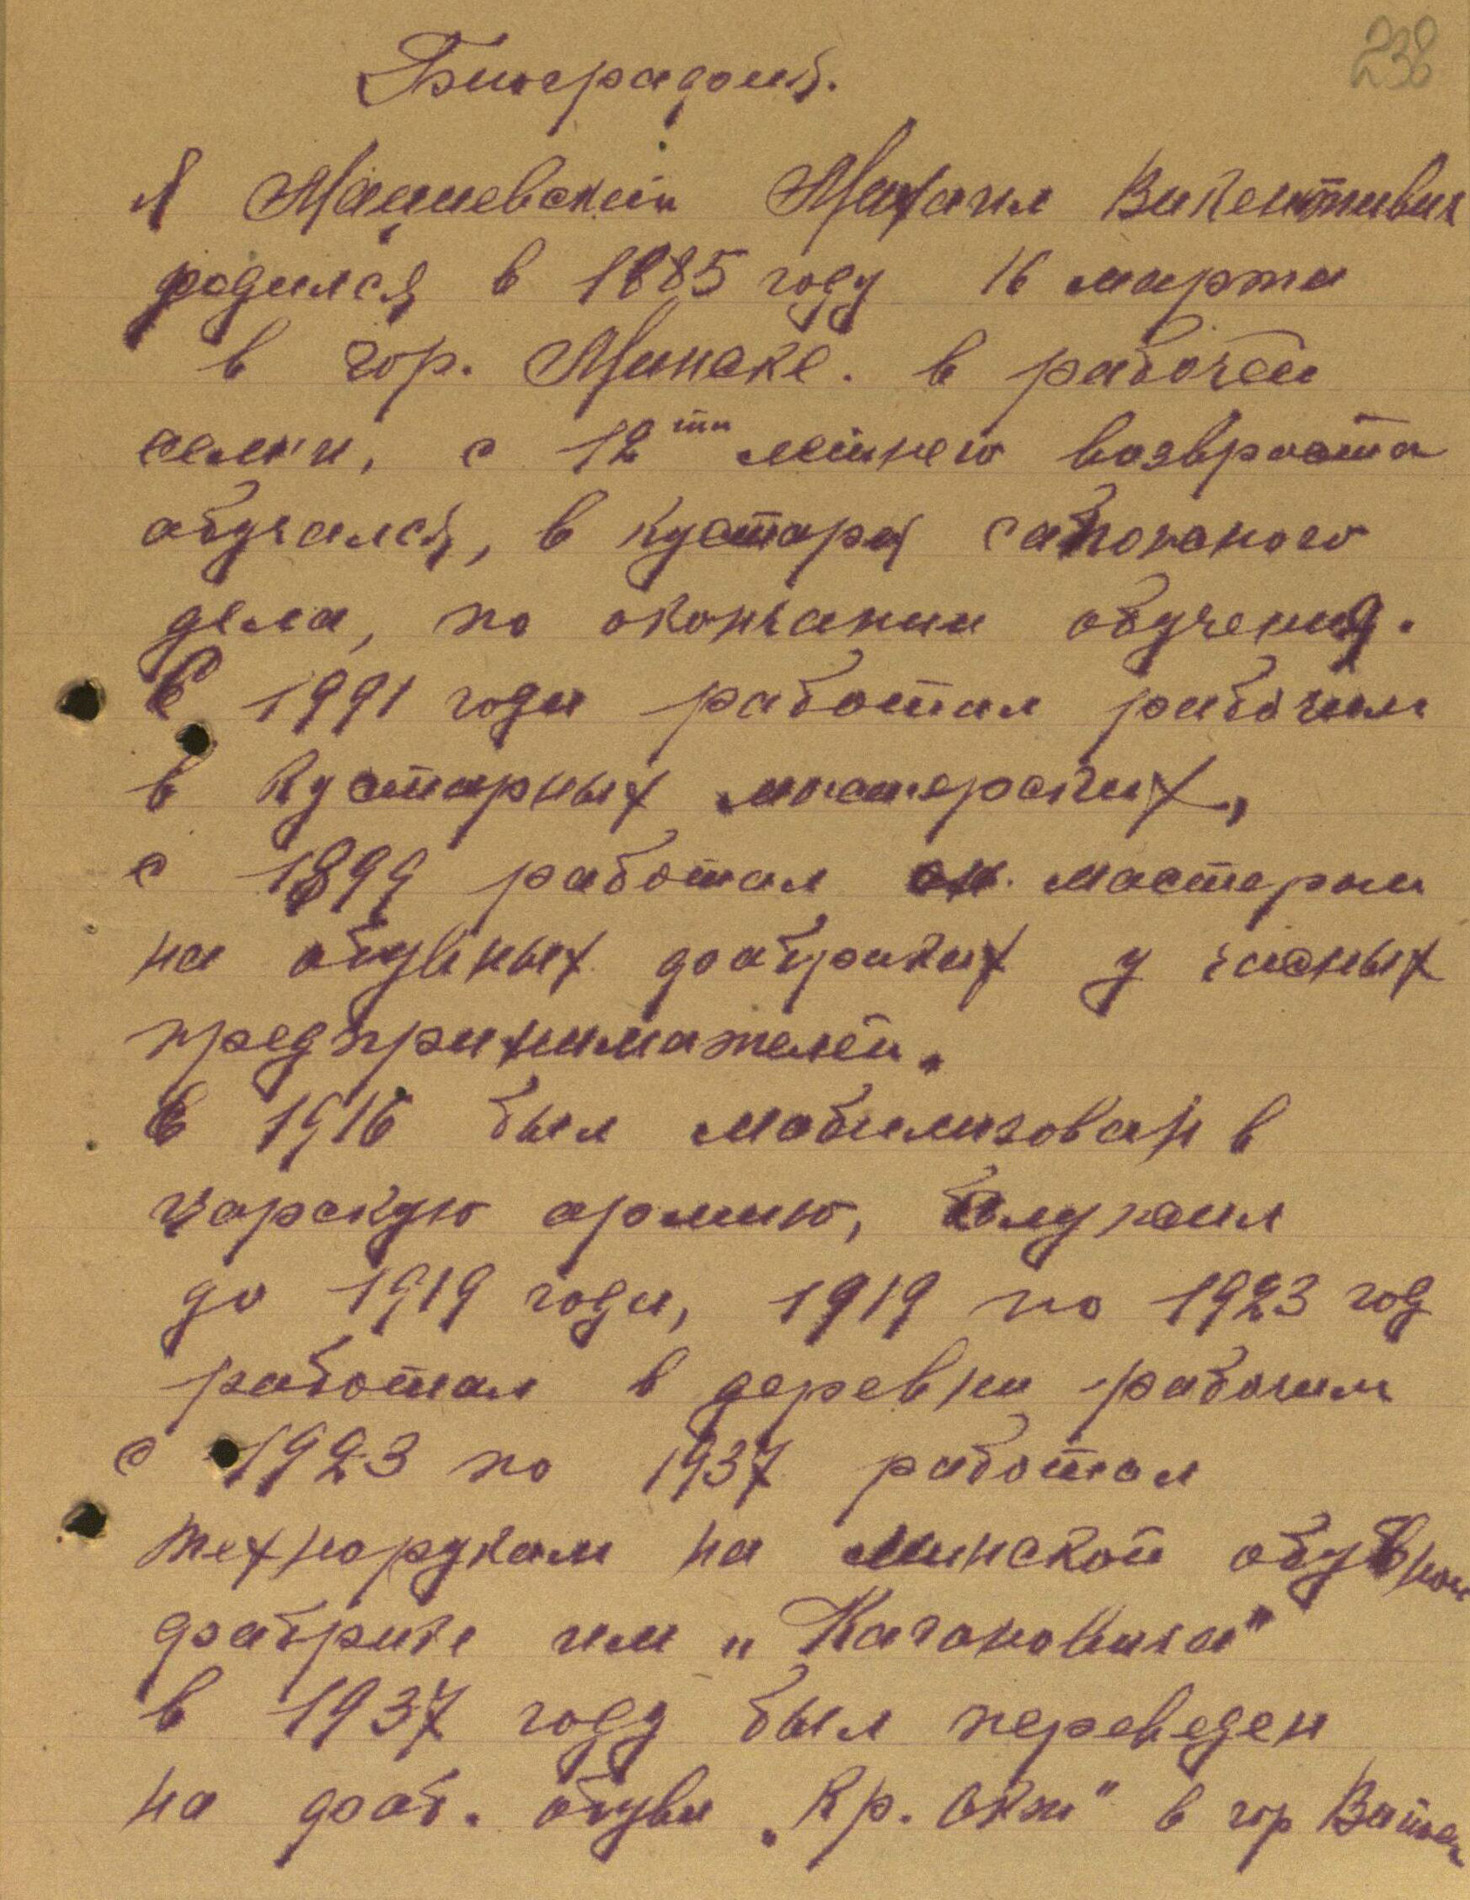 238
Биография.
Я Мациевский Михаил Викентивич
родился в 1885 году 16 марта
в гор. Минске. в рабочей
семьи, с 12ти летнего возвроста
обучался, в кустаря сапожного
дела, по окончании обучения.
С 1991 года работал рабочим
в кустарных мастерских,
с 1899 работал мастером
на обувных фабриких у часных
предпринимателей.
В 1916 был мобилизован в
царскую армию, служил
до 1919 года, 1919 по 1923 год
работал в деревни рабочим
с 1923 по 1937 работал
техноруком на минской обувной
фабрике им „Кагановича"
в 1937 году был переведен
на фаб. обуви „Кр. Окт" в гор